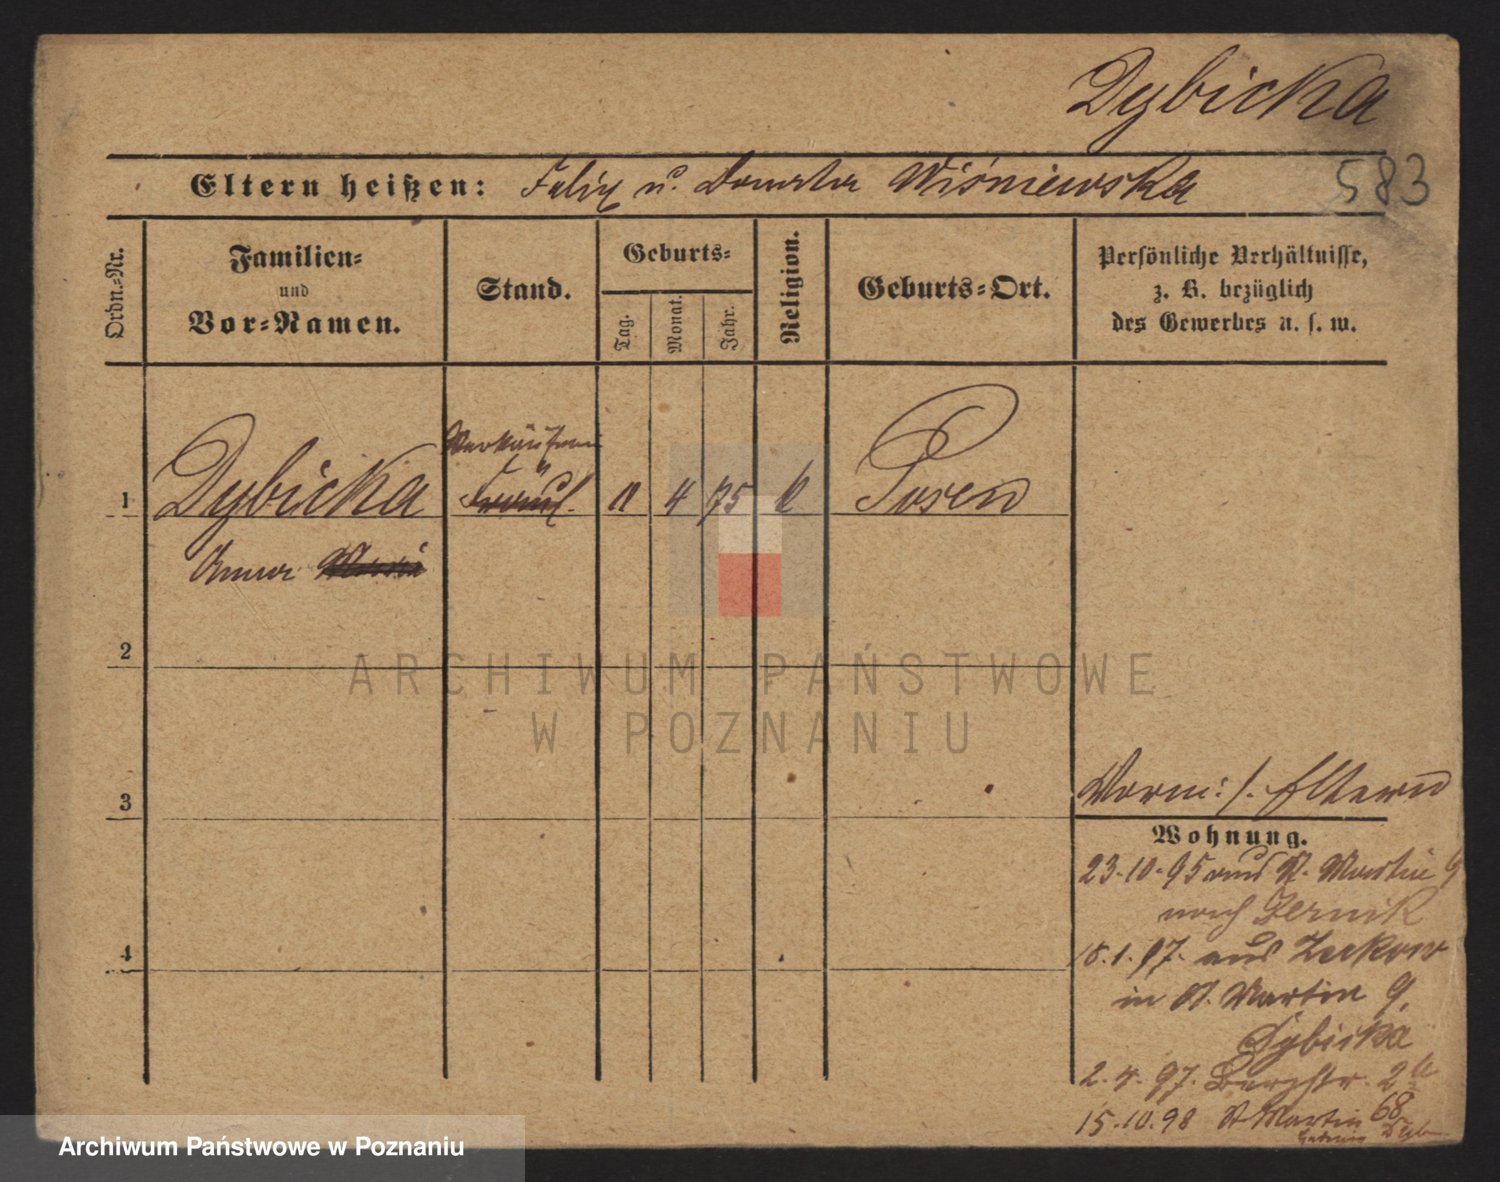 Dybicka
Eltern heißen: Felix u. Wiśniewska
583
Ordn.-Nr.
Familien-
und
Vor-Namen.
Stand.
Geburts-
Tag.
Monat.
Jahr.
Religion.
Geburts-Ort.
Persönliche Verhältnisse,
z. B. bezüglich
des Gewerbes u. s. w.
Verkäuferin
1 Dybicka Fräul. 11 4 75 k Posen
Anna Maria
2
3
4
Vorm: s. Eltern
Wohnung.
23.10.95 aus St. Martin 9
nach Zernik
18.1.97. aus
in St. Martin 9.
Dybicka
2.4.97. Bergstr. 2b
15.10.98 St Martin 68
Dyb
ARCHIWUM PAŃSTWOWE
W POZNANIU
Archiwum Państwowe w Poznaniu